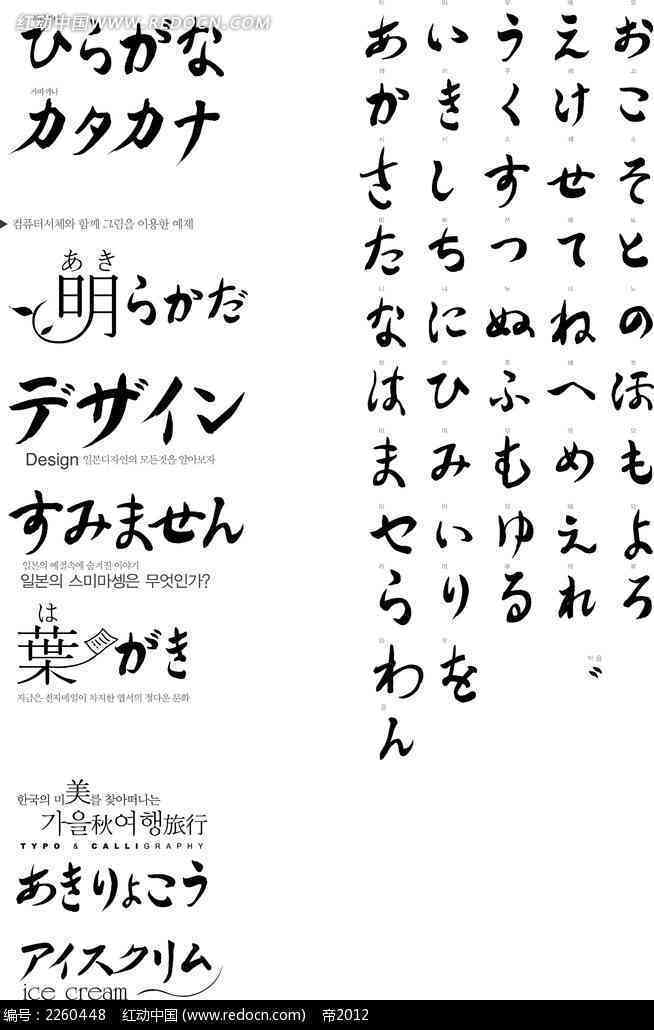 红动中国 WWW.REDOCN.COM
ひらがな
カタカナ
컴퓨터서체와 함께 그림을 이용한 예제
あき
明らかだ
デザイン
Design 일본디자인의 모든것을 알아보자
すみません
일본의 예절속에 숨겨진 이야기
일본의 스미마셍은 무엇인가?
は
葉がき
지금은 전자메일이 차지한 엽서의 정다운 문화
한국의 미美를 찾아떠나는
가을秋여행旅行
TYPO & CALLIGRAPHY
あきりょこう
アイスクリム
ice cream
あ い う え お
か き く け こ
さ し す せ そ
た ち つ て と
な に ぬ ね の
は ひ ふ へ ほ
ま み む め も
や い ゆ え よ
ら り る れ ろ
わ を
ん
编号：2260448 红动中国 (www.redocn.com) 帝2012